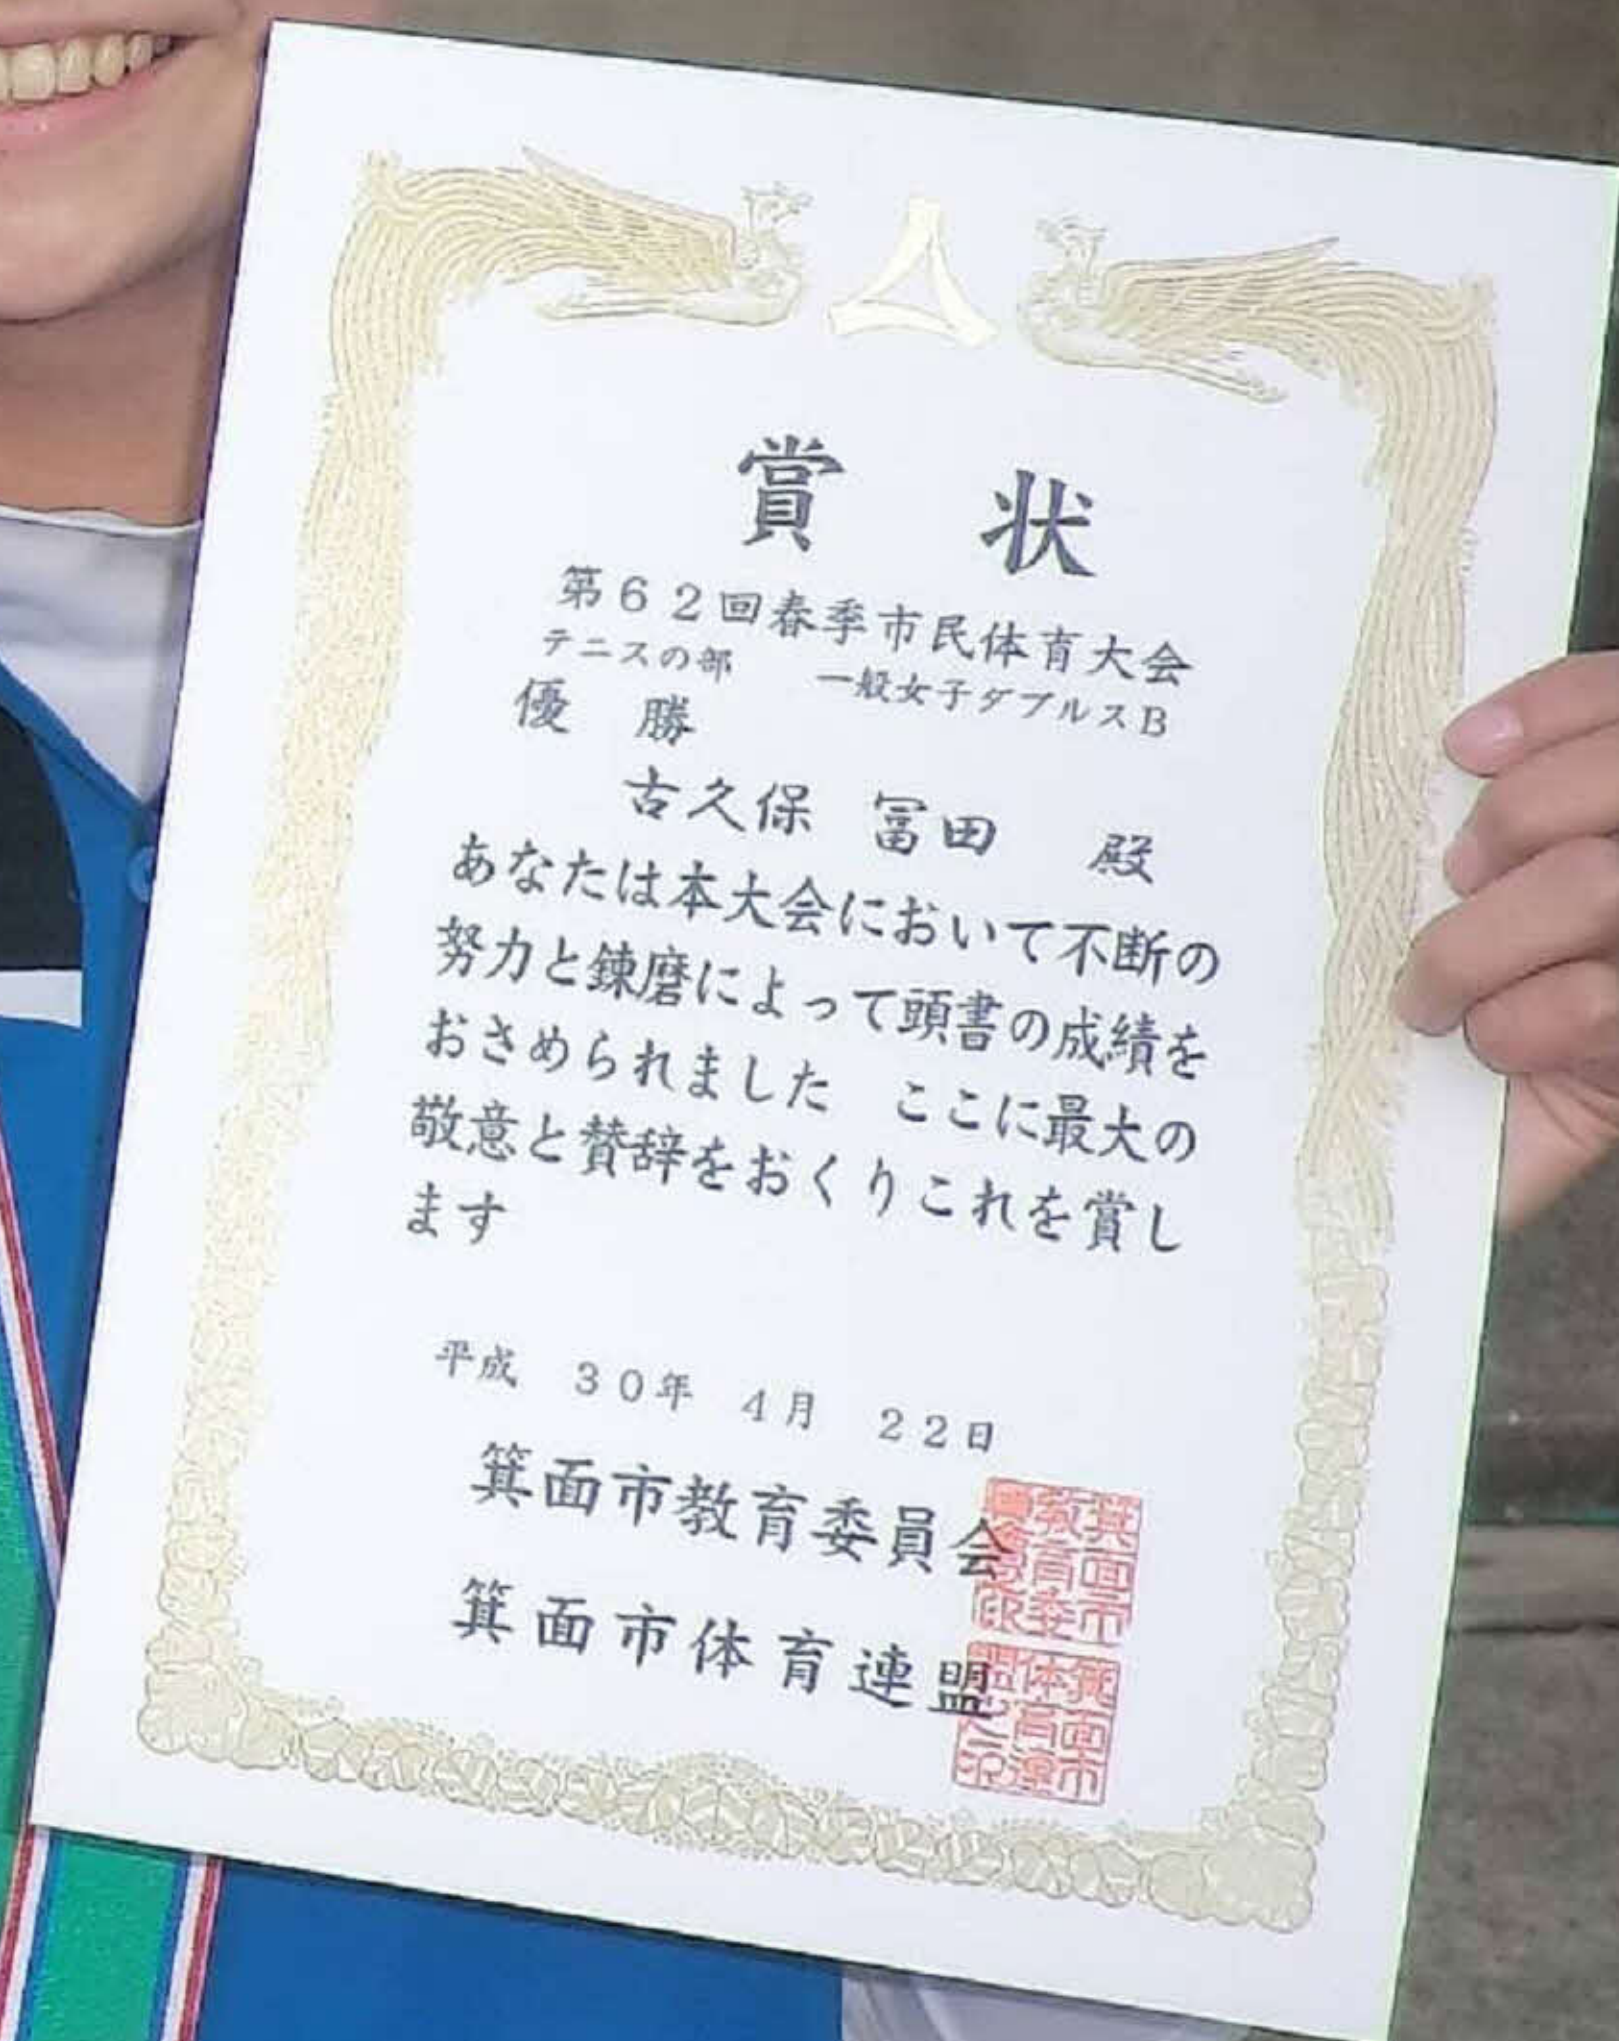 賞 状
第62回春季市民体育大会
テニスの部 一般女子ダブルスB
優 勝
古久保 冨田 殿
あなたは本大会において不断の
努力と錬磨によって頭書の成績を
おさめられました ここに最大の
敬意と賛辞をおくりこれを賞し
ます
平成 30年 4月 22日
箕面市教育委員会
箕面市体育連盟